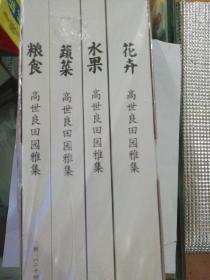 粮食
高世良田园雅集
蔬菜
高世良田园雅集
水果
高世良田园雅集
花卉
高世良田园雅集